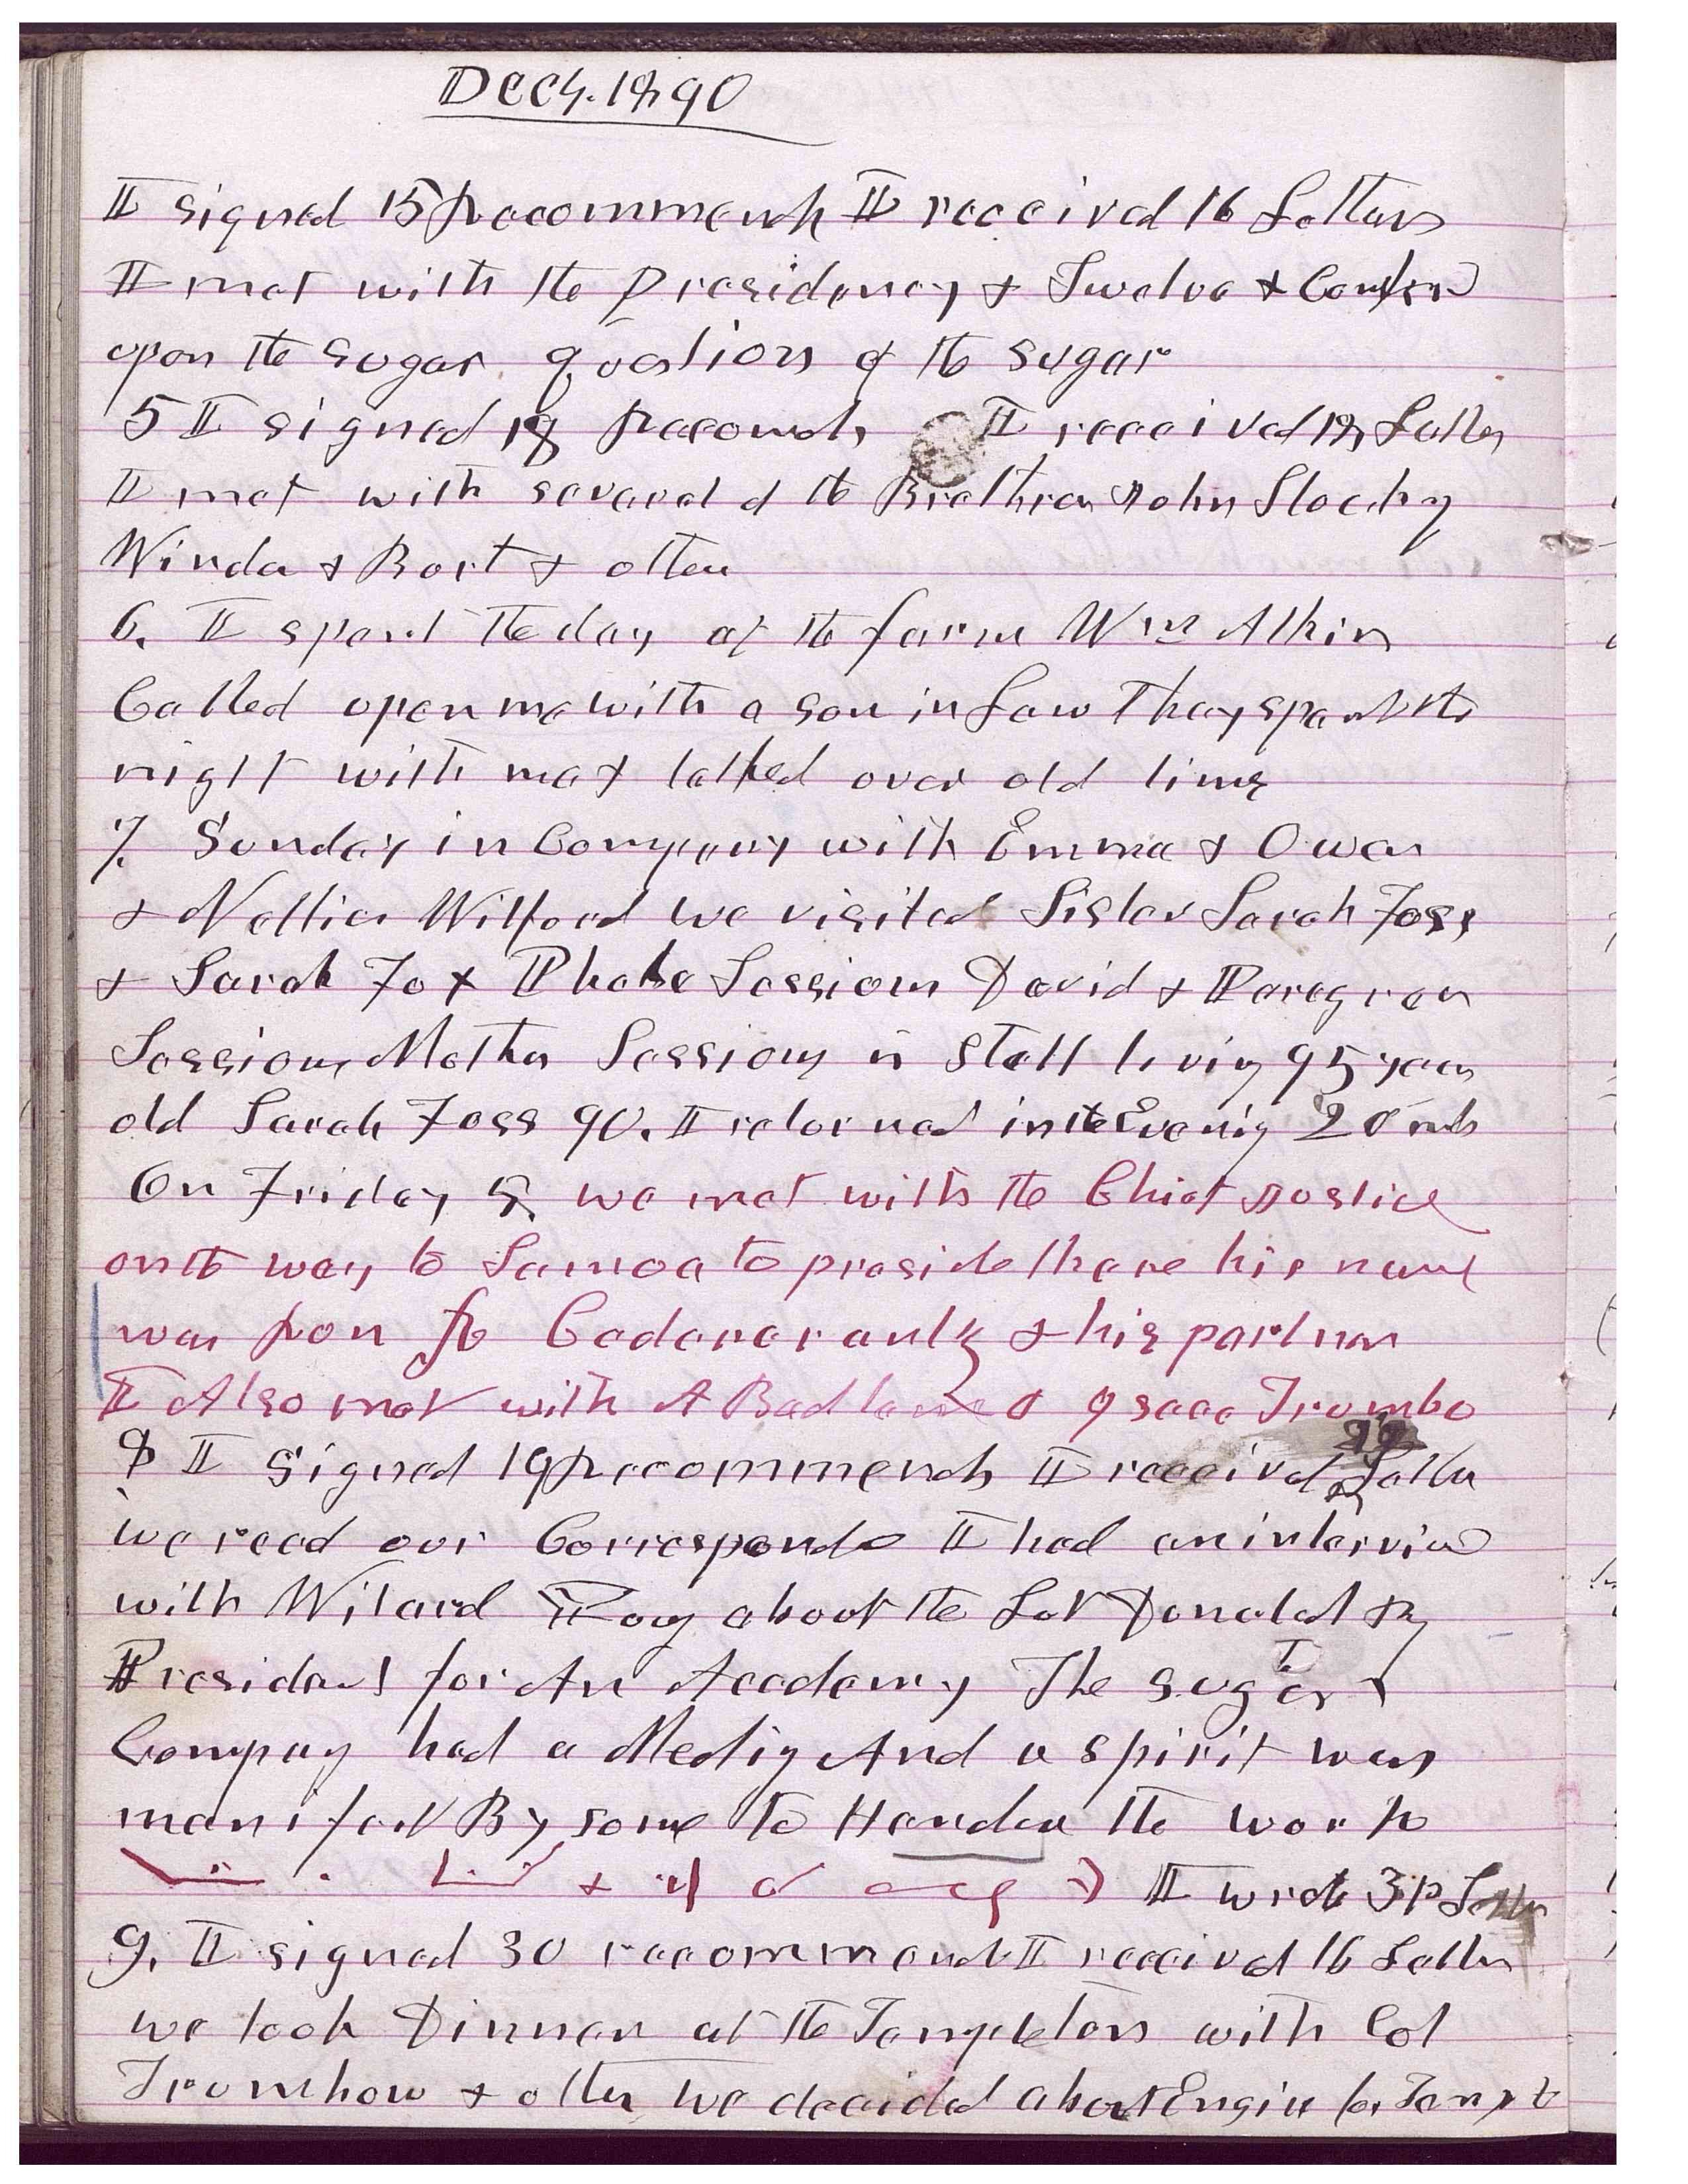 Dec 4. 1890
I signed 15 Recommends I received 16 Letters
I met with the Presidency & Twelve &
upon the sugar questions of the sugar
5 I signed 18 Recomds I received 18 Letters
I met with several of the Brethren John
Winder & Burt & others
6. I spent the day at the farm Wm Atkin
Called upon me with a son in Law They spent the
night with me & talked over old times
7. Sunday in Company with Emma & Owen
& Nellie Wilford we visited Sister Sarah Foss
& Sarah Fox Phebe Sessions David & Peregreen
Sessions Mother Sessions is Still living 95 years
old Sarah Foss 90. I returned in the Evening 20 mls
On Friday 5 we met with the Chief Justice
on the way to Samoa to preside there his name
was & his partner
I Also met with A Badlam & Isaac Trumbo
8 I signed 19 Recommends I received 22 Letters
we read our Corresponde I had an interview
with Wilard about the Lot Donated By
President for An Academy The Sugar
Company had a Meetig And a spirit was
manifest By some to Hander the work
& I wrote 3 P Letters
9. I signed 30 recommends I received 16 Letters
we took Dinner at the Templetons with Col
Trumbow & others we decided about Engine for Temple